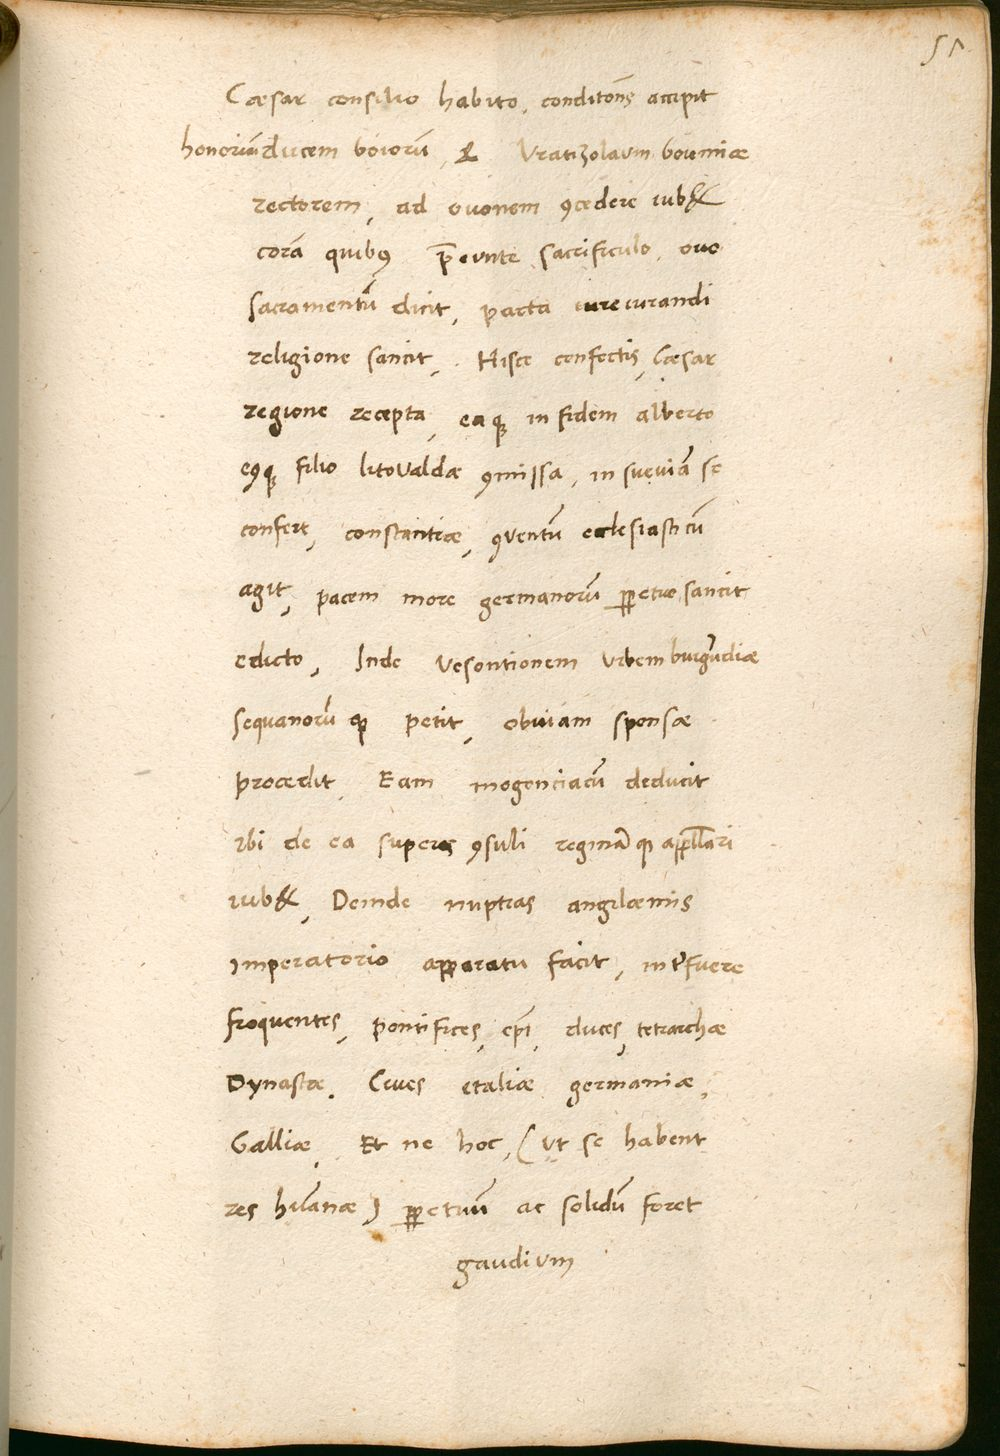 51
Cæsar consilio habito, conditõnẽs accipit
honoriũ ducem boiorũ, & Vratizolaum boiemiæ
rectorem, ad ovonem ꝯcedere iub&
corã quibꝰ p̃eunte sacrificulo, ovo
sacramentũ dicit, pacta iureiurandi
religione sancit, Hisce confectis, Cæsar
regione recepta, eaqꝫ in fidem alberto
eꝰqꝫ filio litovaldæ ꝯmissa, in sueviã se
confert, constantiæ, ꝯventũ ecclesiasticũ
agit, pacem more germanorũ ꝑpetuo sancit
edicto, Inde Vesontionem urbem burgũdiæ
sequanorũ qꝫ petit, obviam sponsæ
procedit, Eam mogonciacũ deducit
ibi de ea superis ꝯsuli reginã qꝫ appllari
iub&, Deinde nuptias angilæmis
imperatorio apparatu facit, intˀfuere
frequentes, pontifices, ep̃i, duces, tetrarchæ
Dynastæ, Cives etaliæ germaniæ,
Galliæ, Et ne hoc, (ut se habent
res humãnæ) ꝑpetuũ ac solidũ foret
gaudium